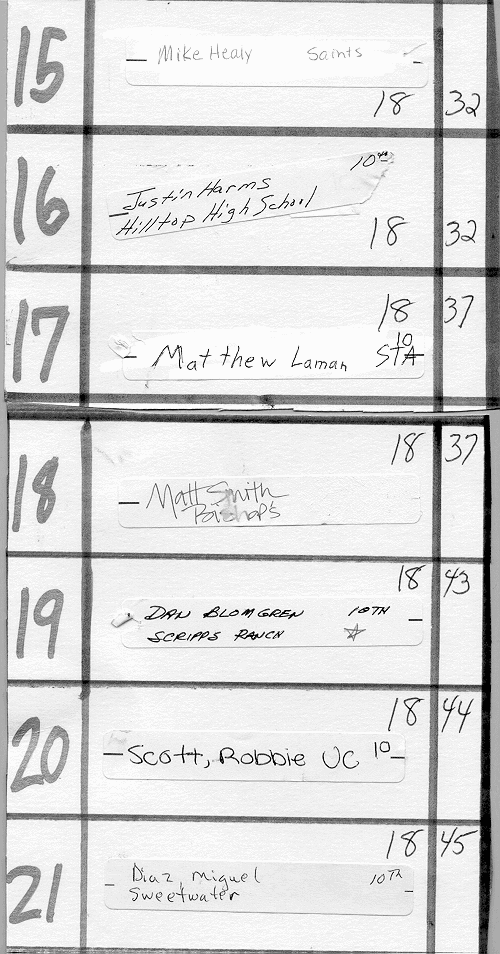 15
Mike Healy Saints
18 32
16
10th
Justin Harms
Hilltop High School
18 32
17
18 37
10
Matthew Laman STA
18
18 37
Matt Smith
Bishop's
19
18 43
DAN BLOMGREN 10TH
SCRIPPS RANCH
20
18 44
Scott, Robbie UC 10
21
18 45
Diaz, Miguel 10TH
Sweetwater